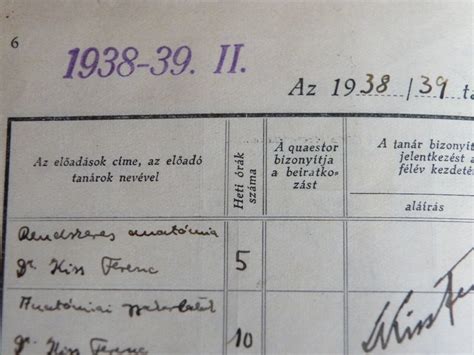 6
1938-39. II.
Az 1938/39 ta
Az előadások címe, az előadó
tanárok nevével
Heti órák
száma
A quaestor
bizonyítja
a beiratko-
zást
A tanár bizonyít
jelentkezést a
félév kezdeté
aláírás
Rendszeres anatómia
Dr. Kiss Ferenc
5
Anatómiai gyakorlatok
Dr. Kiss Ferenc
10
Kiss Fe